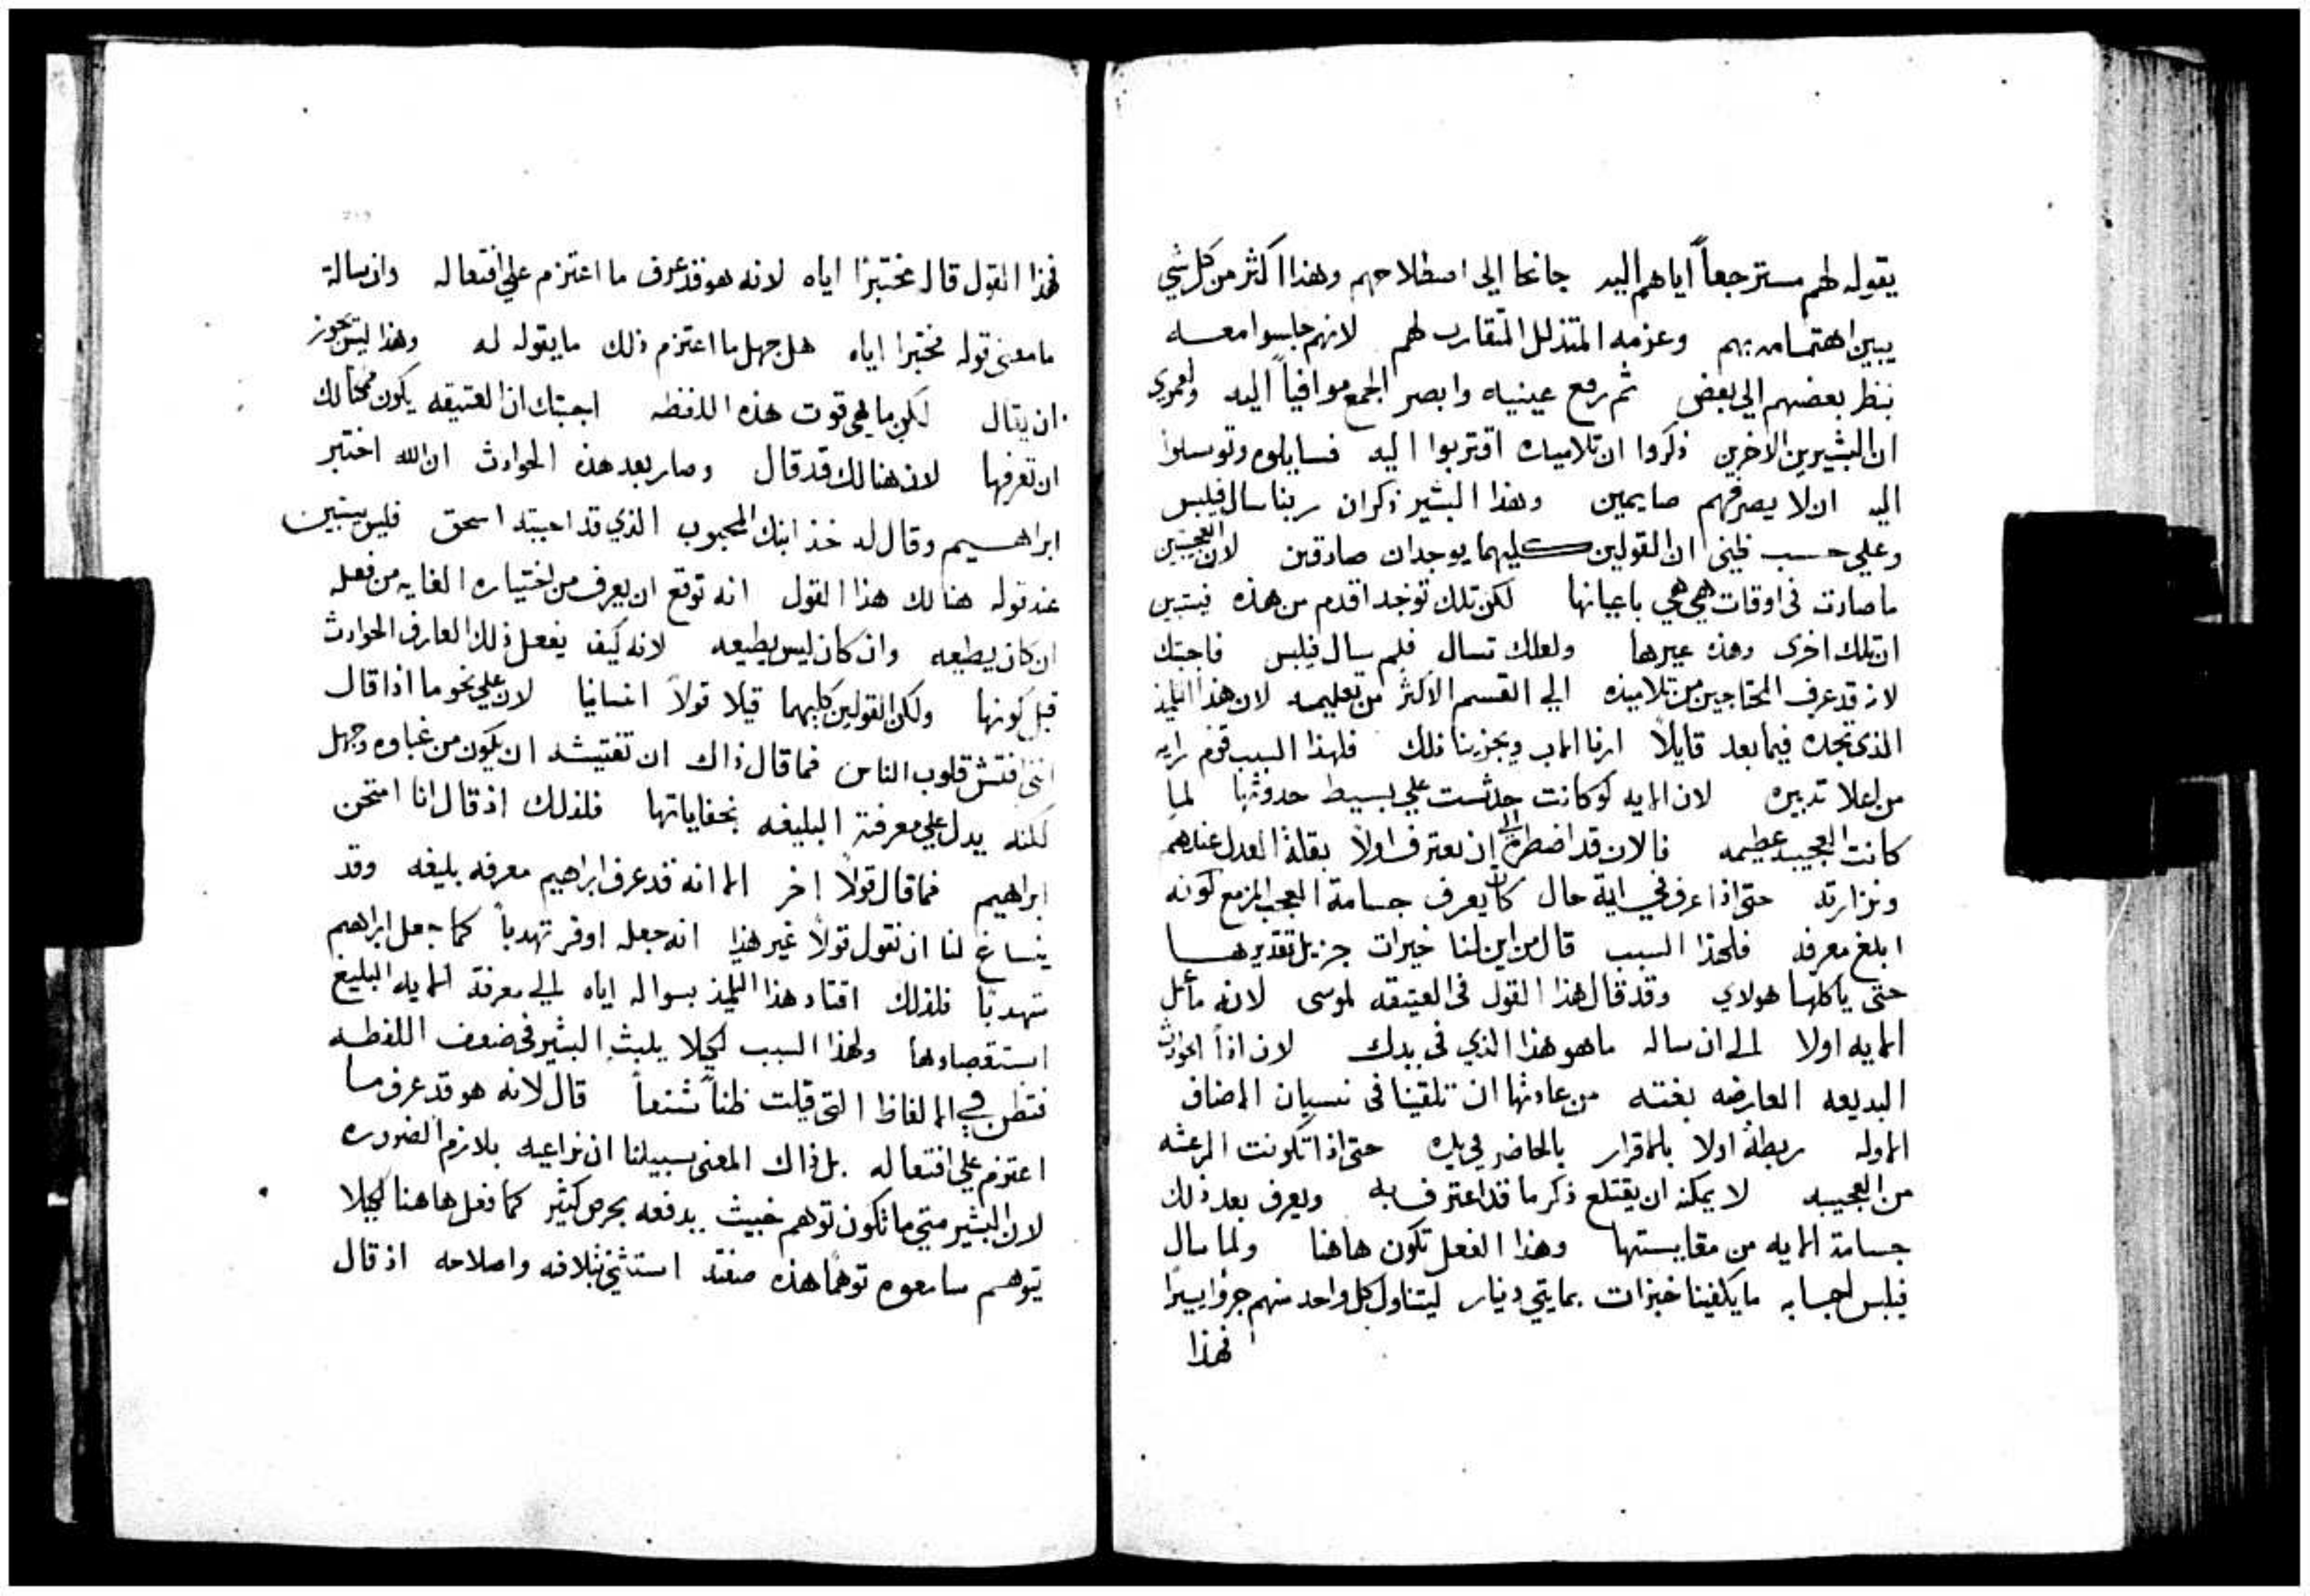 يقوله لهم مسترجعاً اياهم اليه جانحا الى اصطلاحهم وهذا اكثر من كل شي
يبين اهتمامه بهم وعزمه المتذلل المتقارب لهم لانهم جلسوا معه
ينظر بعضهم الي بعض ثم رفع عينيه وابصر الجمع موافياً اليه ولعمري
ان البشيرين الاخرين ذكروا ان تلاميذه اقتربوا اليه فسايلوه وتوسلوا
اليه ان لا يصرفهم صايمين وهذا البشير ذكر ان ربنا سال فيلبس
وعلي حسب ظني ان القولين كليهما يوجدان صادقين لان العجيبتين
ما صارتا في اوقات هي هي باعيانها لكن تلك توجد اقدم من هذه فيتبين
ان تلك اخرى وهذه غيرها ولعلك تسال فلم سال فيلبس فاجبتك
لانه قد عرف المحتاجين من تلاميذه الي القسم الاكثر من تعليمه لان هذا التلميذ
الذي تجده فيما بعد قايلاً ارنا الاب ويجزينا ذلك فلهذا السبب قوم رايه
من اعلا تدبيره لان الايه لو كانت حدثت علي بسيط حدوثها لما
كانت العجيبه عظيمه فالان قد اضطره الى ان يعترف اولاً بقلة العدل عندهم
ونزارته حتى اذا عرف في اية حال كان يعرف جسامة العجب المزمع كونه
ابلغ معرفه فلهذا السبب قال من اين لنا خبزات جزيل تقديرها
حتى ياكلها هولاي وقد قال هذا القول في العتيقه لموسى لانه ما عمل
الايه اولا الى ان ساله ما هو هذا الذي في يدك لان اذاً الحوادث
البديعه العارضه بغتة من عادتها ان تلقينا في نسيان الاصناف
الاوله ربطه اولا بالاقرار بالحاضر في يده حتى اذا تكونت الرعشه
من العجيبه لا يمكنه ان يقتلع ذكر ما قد اعترف به ويعرف بعد ذلك
جسامة الايه من مقايستها وهذا الفعل تكون هاهنا ولما سال
فيلبس اجابه ما يكفينا خبزات بمايتي دينار ليتناول كل واحد منهم جزوا يسيرا
فهذا
فهذا القول قال مختبرا اياه لانه هو قد عرف ما اعتزم علي افتعاله وان ساله
ما معنى قوله مختبرا اياه هل جهل ما اعتزم ذلك ما يقوله له وهذا ليس يجوز
ان يقال لكن ما هي قوت هذه اللفظه اجبتك ان العتيقه يكون ممكنا لك
ان تعرفها لان هنالك قد قال وصار بعد هذه الحوادث ان الله اختبر
ابراهيم وقال له خذ ابنك المحبوب الذي قد احببته اسحق فليس يتبين
عند قوله هنالك هذا القول انه توقع ان يعرف من اختياره الغايه من فعله
ان كان يطيعه وان كان ليس يطيعه لانه كيف يفعل ذلك العارف الحوادث
قبل كونها ولكن القولين كليهما قيلا قولاً انسانيا لان علي نحو ما اذا قال
انني افتش قلوب الناس فما قال ذاك ان تفتيشه ان يكون من غباوه وجهل
لكنه يدل علي معرفته البليغه بخفاياتها فلذلك اذ قال انا امتحن
ابراهيم فما قال قولاً اخر الا انه قد عرف ابراهيم معرفه بليغه وقد
ينساغ لنا ان نقول قولاً غير هذا انه جعله اوفر تهدباً كما جعل ابراهيم
متهدباً فلذلك اقتاد هذا التلميذ بسواله اياه الي معرفة الايه البليغ
استقصاوها ولهذا السبب لكيلا يلبث البشير في ضعف اللفظه
فتظن في الالفاظ التي قيلت ظناً شنعاً قال لانه هو قد عرف ما
اعتزم علي افتعاله بل ذاك المعنى سبيلنا ان نراعيه بلازم الضروره
لان البشير متي ما تكون توهم خبيث يدفعه بحرص كثير كما فعل هاهنا لكيلا
يتوهم سامعوه توهما هذه صفته استثنى بتلافه واصلاحه اذ قال